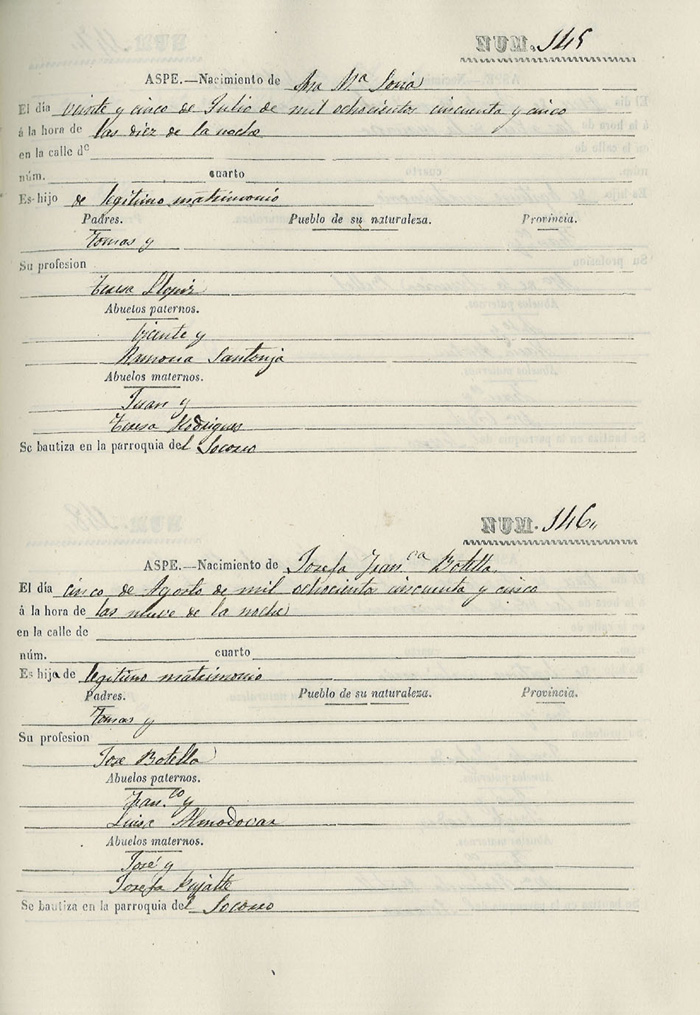 NUM. 145
ASPE.—Nacimiento de Ana Mª Soria
El día veinte y cinco de Julio de mil ochocientos cincuenta y cinco
á la hora de las diez de la noche
en la calle de
núm. cuarto
Es hijo de legitimo matrimonio
Padres. Pueblo de su naturaleza. Provincia.
Tomas y
Su profesion
Teresa
Abuelos paternos.
Vicente y
Ramona Santonja
Abuelos maternos.
Juan y
Teresa Rodriguez
Se bautiza en la parroquia del Socorro
NUM. 146
ASPE.—Nacimiento de Josefa Fran.ca Botella
El día cinco de Agosto de mil ochocientos cincuenta y cinco
á la hora de las nueve de la noche
en la calle de
núm. cuarto
Es hija de legitimo matrimonio
Padres. Pueblo de su naturaleza. Provincia.
Tomas y
Su profesion
Jose Botella
Abuelos paternos.
Fran.co y
Luisa Almodovar
Abuelos maternos.
José y
Josefa Pujalte
Se bautiza en la parroquia del Socorro